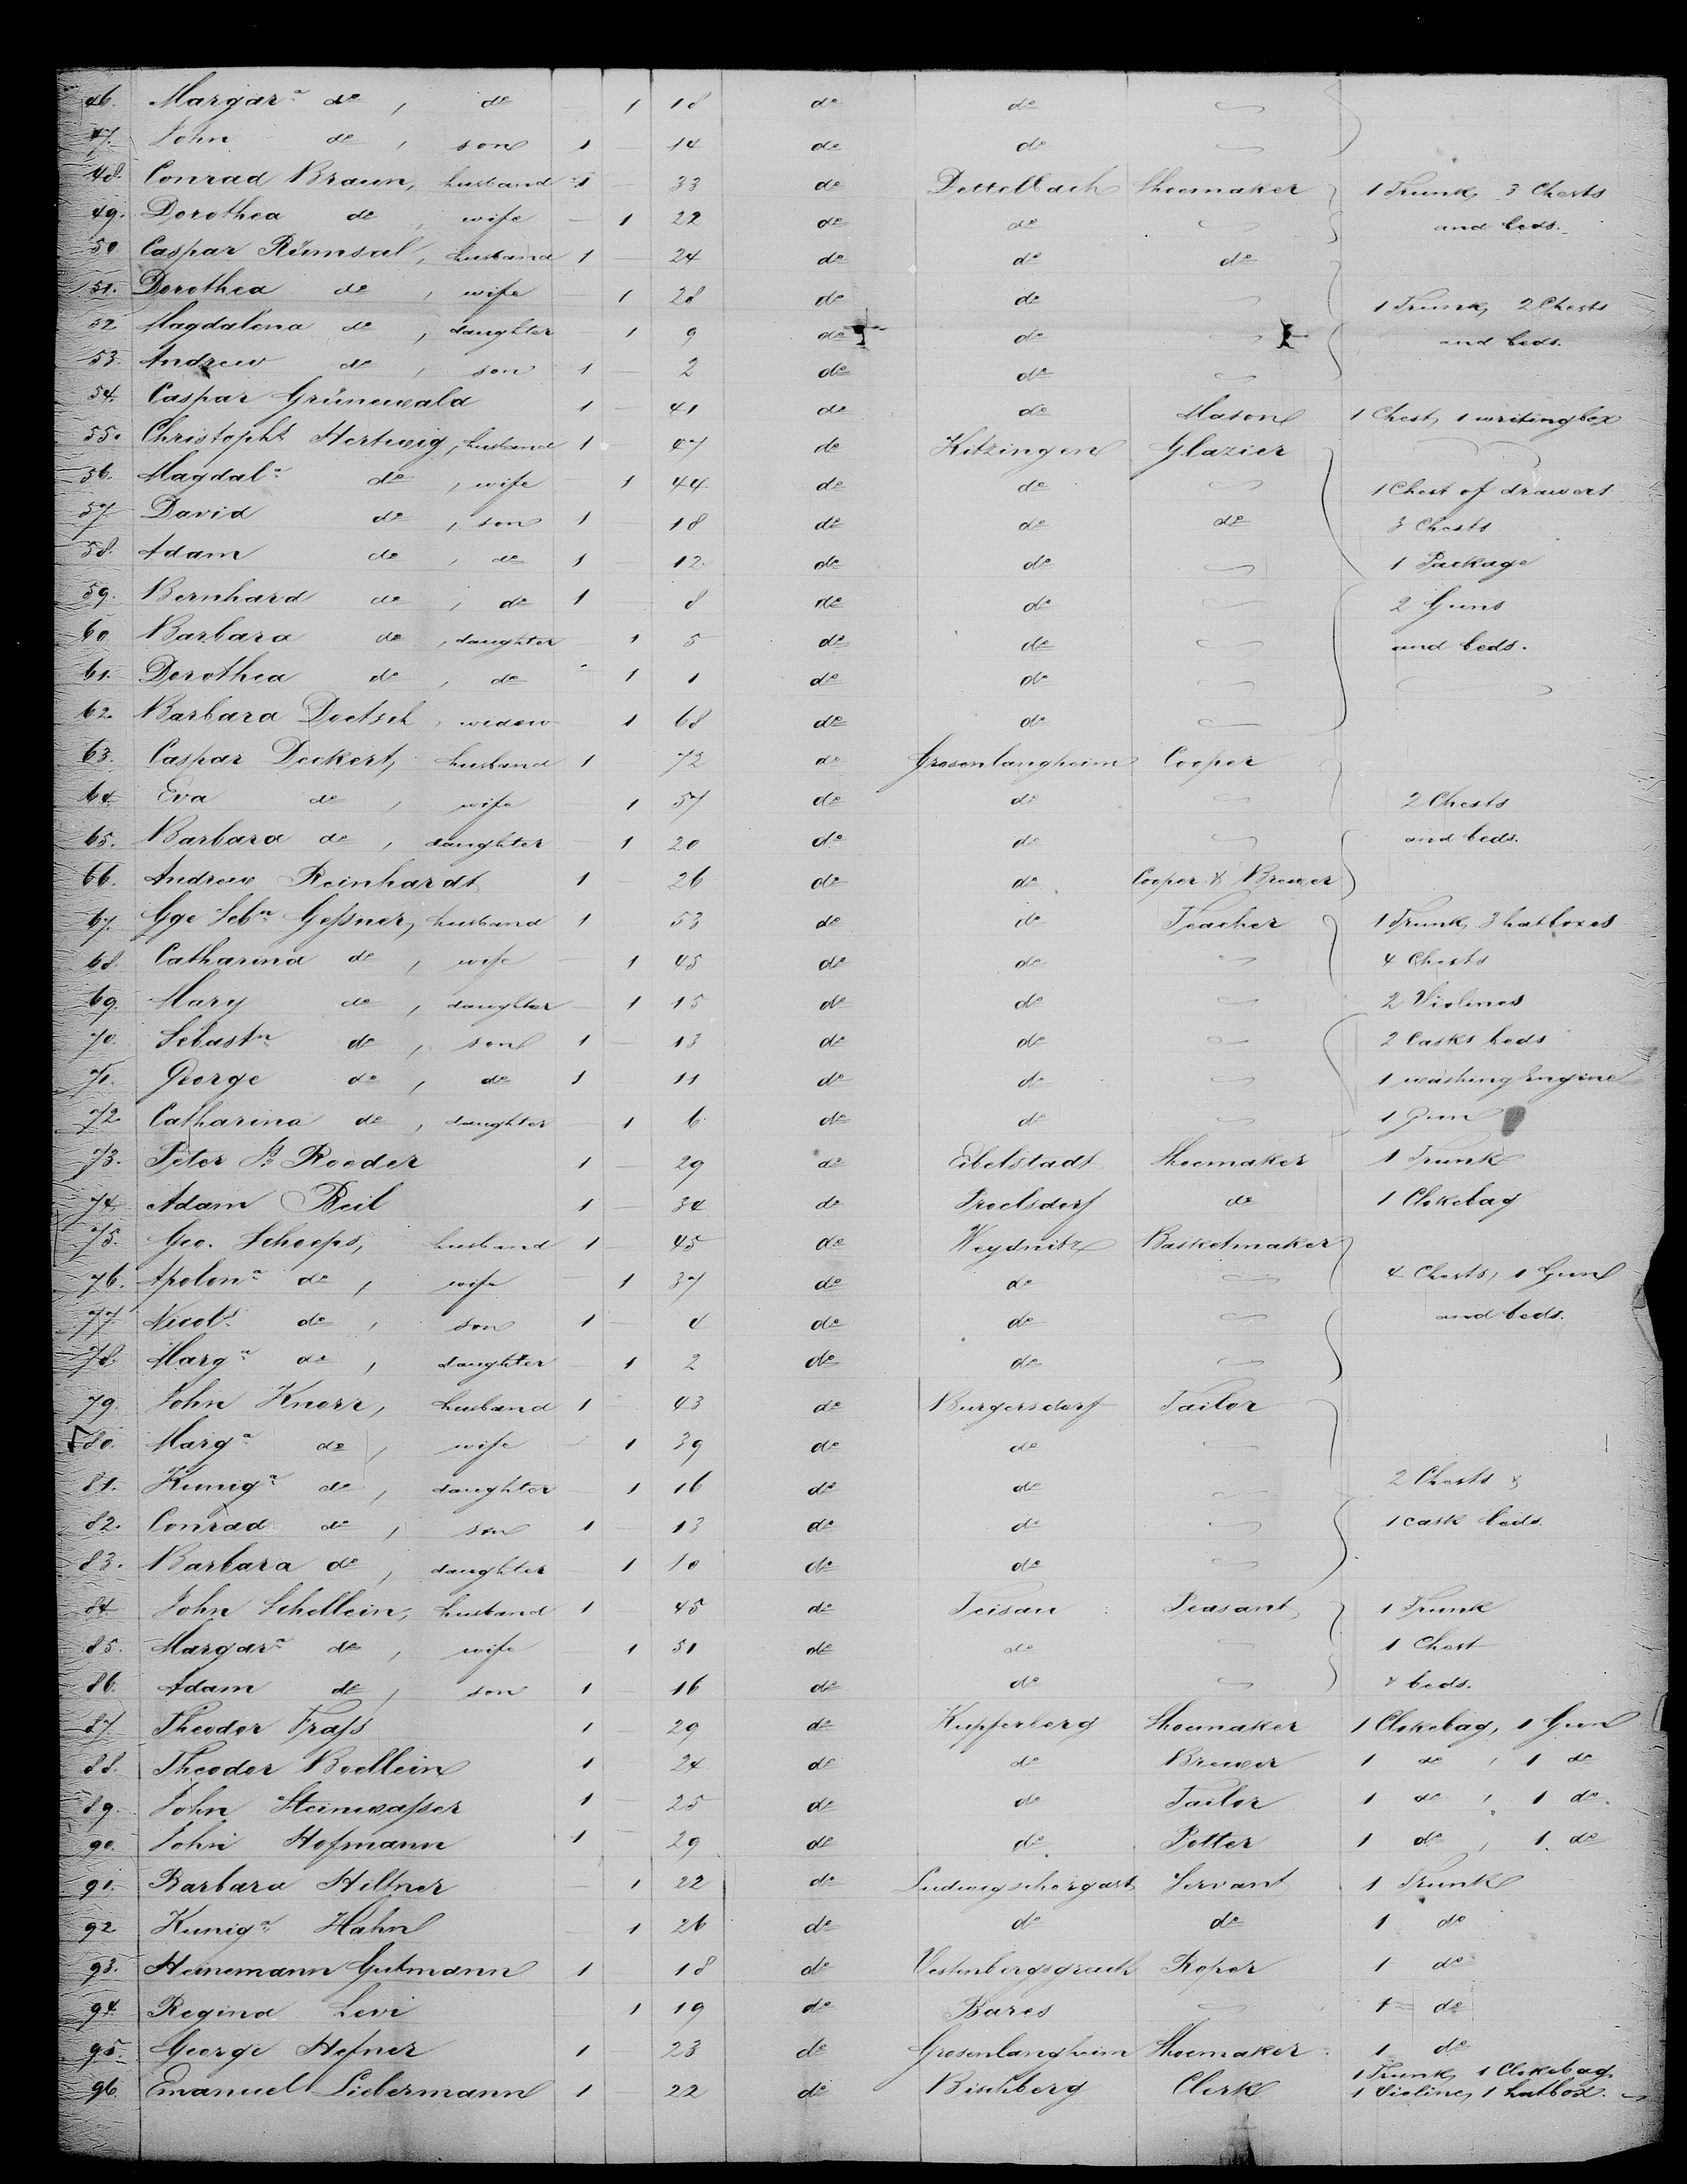 46. Margar.ª do , do 1 18 do do
47. John do , son 1 14 do do
48. Conrad Braun, husband 1 33 do Dettelbach Shoemaker 1 Trunk, 3 Chests
49. Dorothea do , wife 1 22 do do and beds.
50. Caspar Rümsal, husband 1 24 do do do
51. Dorothea do , wife 1 28 do do 1 Trunk, 2 Chests
52 Magdalena do , daughter 1 9 do do and beds.
53. Andrew do , son 1 2 do do
54. Caspar Grünewald 1 41 do do Mason 1 Chest, 1 writingbox
55. Christopht Hertwig, husband 1 47 do Kitzingen Glazier
56. Magdal.ª do , wife 1 44 do do 1 Chest of drawers
57 David do , son 1 18 do do do 3 Chests
58. Adam do , do 1 12 do do 1 Package
59. Bernhard do , do 1 8 do do 2 Guns
60 Barbara do , daughter 1 5 do do and beds.
61. Dorothea do , do 1 1 do do
62. Barbara Doetsch, widow 1 68 do do
63. Caspar Deckert, husband 1 72 do Grosenlangheim Cooper
64. Eva do , wife 1 57 do do 2 Chests
65. Barbara do , daughter 1 20 do do and beds.
66. Andrew Reinhardt 1 26 do do Cooper & Brewer
67. Gge Seb.n Geßner, husband 1 53 do do Teacher 1 Trunk, 3 hatboxes
68. Catharina do , wife 1 45 do do 4 Chests
69. Mary do , daughter 1 15 do do 2 Violines
70. Sebast.n do , son 1 13 do do 2 Casks beds
71. George do , do 1 11 do do 1 washing Engine
72 Catharina do , daughter 1 6 do do 1 Gun
73. Peter Roeder 1 29 do Eibelstadt Shoemaker 1 Trunk
74. Adam Beil 1 34 do Troelsdorf do 1 Clokebag
75. Geo. Schoeps, husband 1 45 do Weydnitz Basketmaker
76. Apolon.ª do , wife 1 37 do do 4 Chests, 1 Gun
77. Nicol.s do , son 1 4 do do and beds.
78. Marg.ª do , daughter 1 2 do do
79. John Knorr, husband 1 43 do Burgersdorf Tailor
80. Marg.ª do , wife 1 39 do do
81. Kunig.ª do , daughter 1 16 do do 2 Chests &
82. Conrad do , son 1 13 do do 1 cask beds.
83. Barbara do , daughter 1 10 do do
84 John Schollein, husband 1 45 do Teisau Peasant 1 Trunk
85. Margar.ª do , wife 1 51 do do 1 Chest
86. Adam do , son 1 16 do do & beds.
87. Theodor Fraß 1 29 do Kupferberg Shoemaker 1 Clokebag, 1 Gun
88. Theodor Boellein 1 24 do do Brewer 1 do , 1 do
89. John Steinwaßer 1 25 do do Tailor 1 do , 1 do.
90. John Hofmann 1 29 do do Potter 1 do , 1 do
91. Barbara Hiltner 1 22 do Ludwigschorgast Servant 1 Trunk
92 Kunig.ª Hahn 1 26 do do do 1 do
93. Heinemann Gutmann 1 18 do Vestenbergsgreuth Roper 1 do
94 Regina Levi 1 19 do Bares 1 do
95. George Hefner 1 23 do Grosenlangheim Shoemaker 1 do
96 Emanuel Liebermann 1 22 do Bischberg Clerk 1 Trunk, 1 Clokebag,
1 Violine, 1 hatbox.